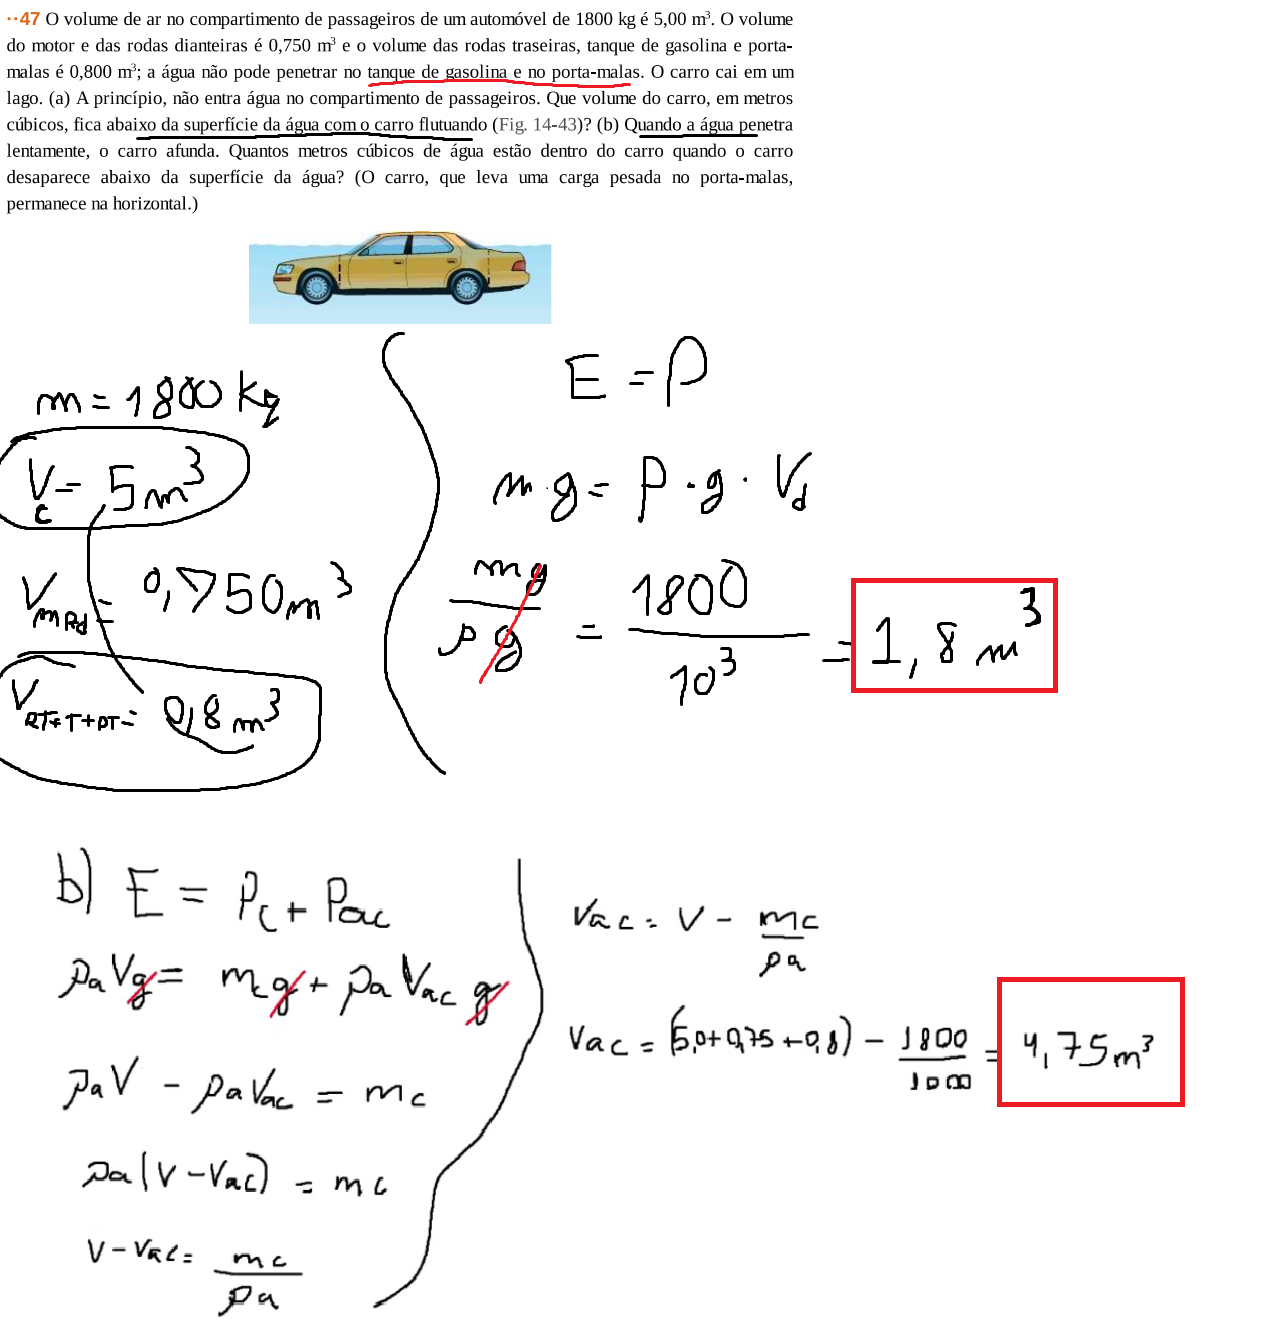 ··47 O volume de ar no compartimento de passageiros de um automóvel de 1800 kg é 5,00 m³. O volume
do motor e das rodas dianteiras é 0,750 m³ e o volume das rodas traseiras, tanque de gasolina e porta-
malas é 0,800 m³; a água não pode penetrar no tanque de gasolina e no porta-malas. O carro cai em um
lago. (a) A princípio, não entra água no compartimento de passageiros. Que volume do carro, em metros
cúbicos, fica abaixo da superfície da água com o carro flutuando (Fig. 14-43)? (b) Quando a água penetra
lentamente, o carro afunda. Quantos metros cúbicos de água estão dentro do carro quando o carro
desaparece abaixo da superfície da água? (O carro, que leva uma carga pesada no porta-malas,
permanece na horizontal.)
m = 1800 kg
Vc = 5m³
VmRd = 0,750m³
VRT+T+PT = 0,8m³
E = P
m·g = ρ·g·Vd
mg/ρg = 1800/10³ = 1,8 m³
b) E = Pc + Pac
ρaVg = mcg + ρaVacg
ρaV - ρaVac = mc
ρa(V - Vac) = mc
V - Vac = mc/ρa
Vac = V - mc/ρa
Vac = (5,0+0,75+0,8) - 1800/1000 = 4,75m³